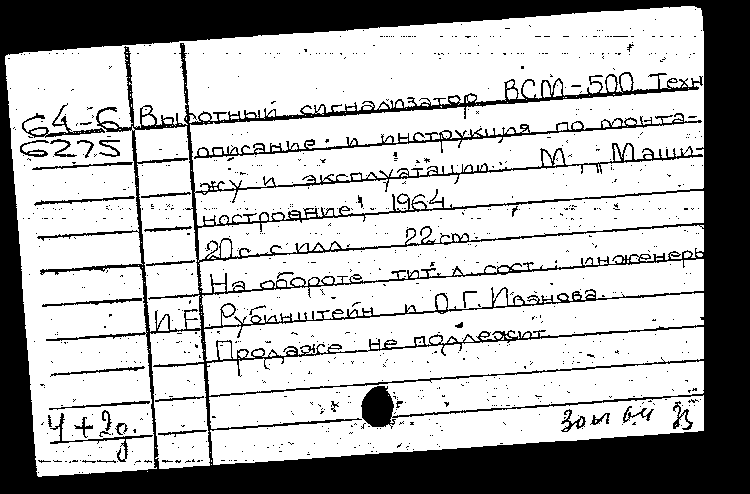 64-6 Высотный сигнализатор ВСМ-500 Техн
6275 описание и инструкция по монта-
жу и эксплуатации. М., "Маши-
ностроение", 1964.
20 с. с илл. 22 см.
На обороте тит. л. сост.: инженеры
И.Е. Рубинштейн и О.Г. Иванова.
Продаже не подлежит
4+2д. 64